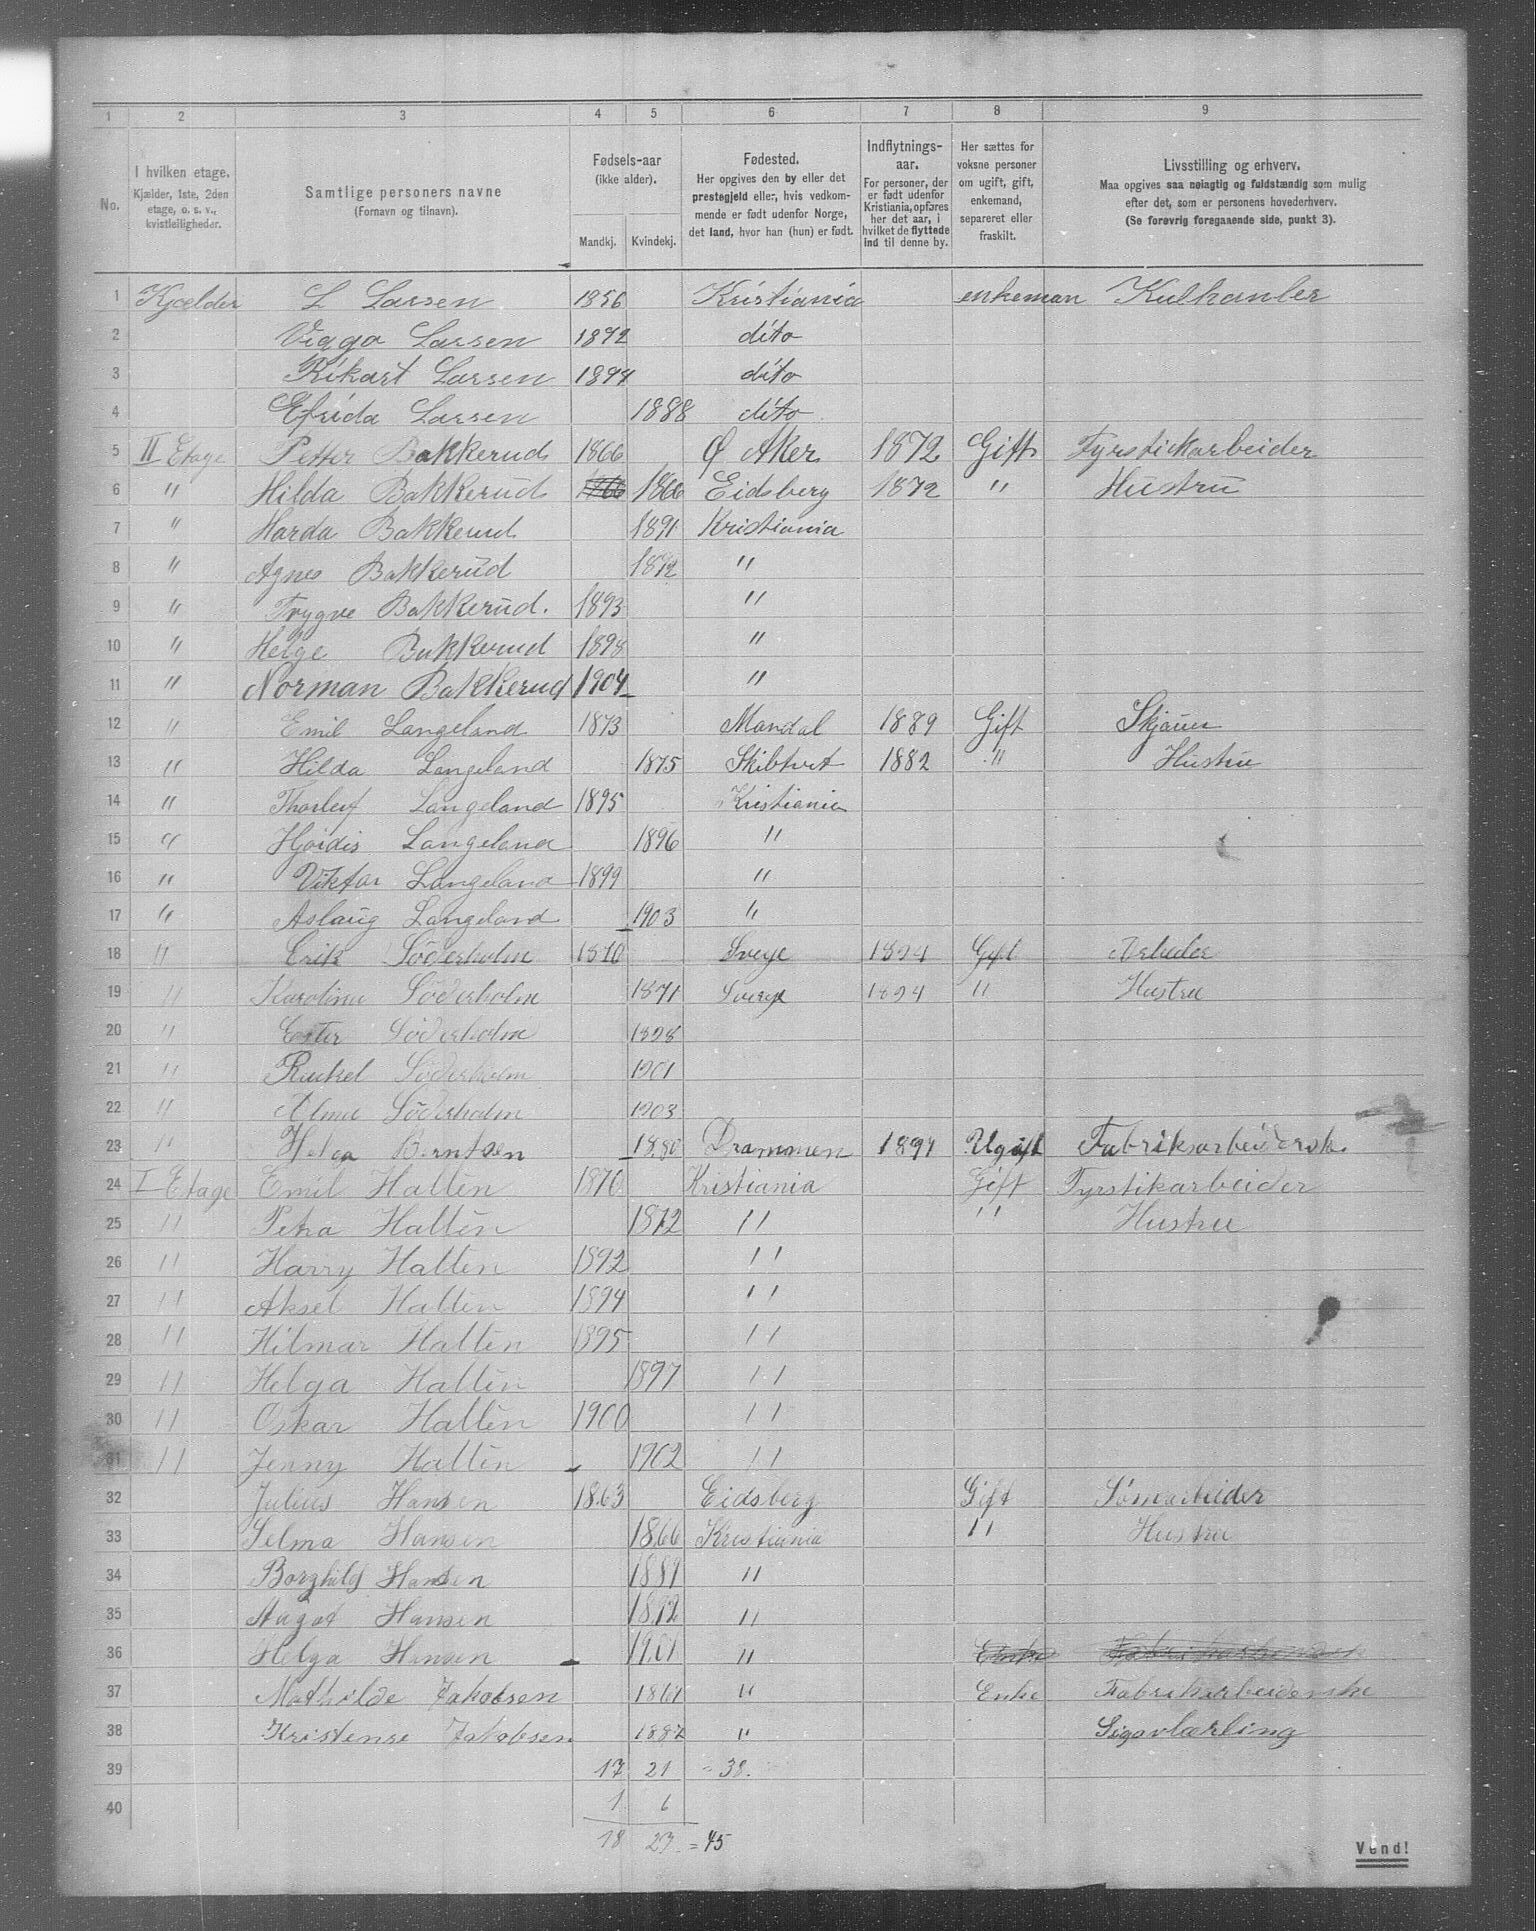 1 2 3 4 5 6 7 8 9
No.
I hvilken etage.
Kjælder, 1ste, 2den
etage, o. s. v.,
kvistleiligheder.
Samtlige personers navne
(Fornavn og tilnavn).
Fødsels-aar
(ikke alder).
Mandkj. Kvindekj.
Fødested.
Her opgives den by eller det
prestegjeld eller, hvis vedkom-
mende er født udenfor Norge,
det land, hvor han (hun) er født.
Indflytnings-
aar.
For personer, der
er født udenfor
Kristiania, opføres
her det aar, i
hvilket de flyttede
ind til denne by.
Her sættes for
voksne personer
om ugift, gift,
enkemand,
separeret eller
fraskilt.
Livsstilling og erhverv.
Maa opgives saa nøiagtig og fuldstændig som mulig
efter det, som er personens hovederhverv.
(Se forøvrig foregaaende side, punkt 3).
1 Kjælder L Larsen 1856 Kristiania enkeman Kulhanler
2 Viggo Larsen 1892 dito
3 Rikart Larsen 1894 dito
4 Efrida Larsen 1888 dito
5 II Etage Petter Bakkerud 1866 Ø Aker 1872 Gift Fyrstickarbeider
6 " Hilda Bakkerud 1866 1866 Eidsberg 1872 " Hustru
7 " Harda Bakkerud 1891 Kristiania
8 " Agnes Bakkerud 1892 "
9 " Trygve Bakkerud. 1893 "
10 " Helge Bakkerud 1898 "
11 " Norman Bakkerud 1904 "
12 " Emil Langeland 1873 Mandal 1889 Gift Skjauer
13 " Hilda Langeland 1875 Skibtvet 1882 " Hustru
14 " Thorleif Langeland 1895 Kristiania
15 " Hjoidis Langeland 1896 "
16 " Viktor Langeland 1899 "
17 " Aslaug Langeland 1903 "
18 " Erik Söderholm 1870 Sverje 1894 Gift Arbeider
19 " Karolina Söderholm 1871 Sverje 1894 " Hustru
20 " Ester Söderholm 1898
21 " Rackel Söderholm 1901
22 " Alma Söderholm 1903
23 " Helga Berntsen 1880 Drammen 1891 Ugift Fabriksarbeiderske.
24 I Etage Emil Hallén 1870 Kristiania Gift Fyrstikarbeider
25 " Petra Hallén 1872 " " Hustru
26 " Harry Hallén 1892 "
27 " Aksel Hallén 1894 "
28 " Hilmar Hallén 1895 "
29 " Helga Hallén 1897 "
30 " Oskar Hallén 1900 "
31 " Jenny Hallén 1902 "
32 Julius Hansen 1863 Eidsberg Gift Sömarbeider
33 Selma Hansen 1866 Kristiania " Hustru
34 Borghild Hansen 1891 "
35 Hansen 1892 "
36 Helga Hansen 1901 " Enke
37 Mathilde Jakobsen 1861 " Enke Fabrikarbeiderske
38 Kristense Jakobsen 1882 " Sigavlærling
39 17 21 = 38.
40 1 6
18 27 = 45
Vend!